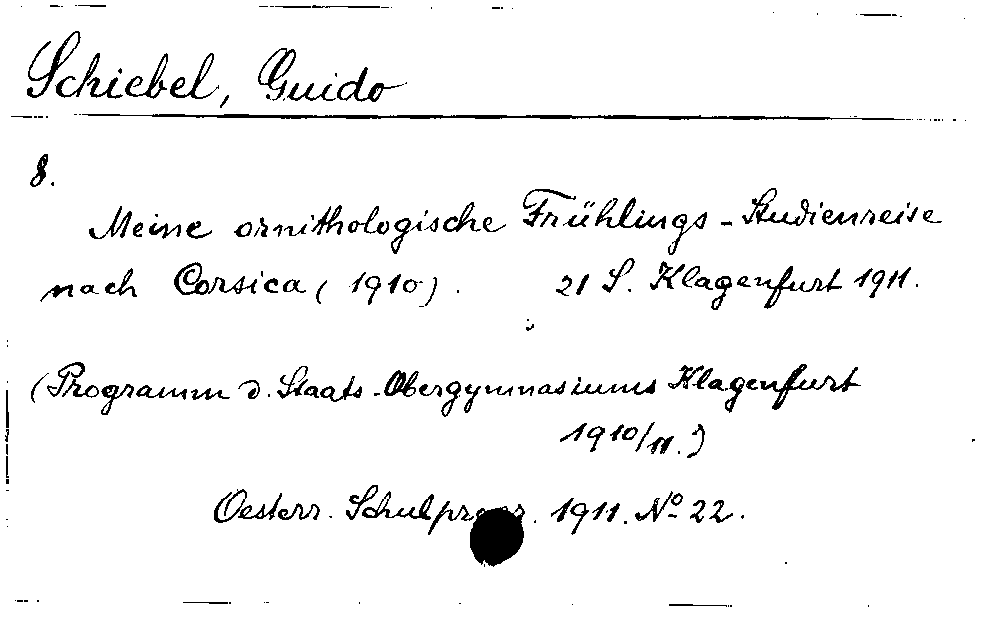 Schiebel, Guido
8.
Meine ornithologische Frühlings-Studienreise
nach Corsica (1910). 21 S. Klagenfurt 1911.
(Programm d. Staats-Obergymnasiums Klagenfurt
1910/11.)
Oesterr. Schulprogr. 1911. No 22.